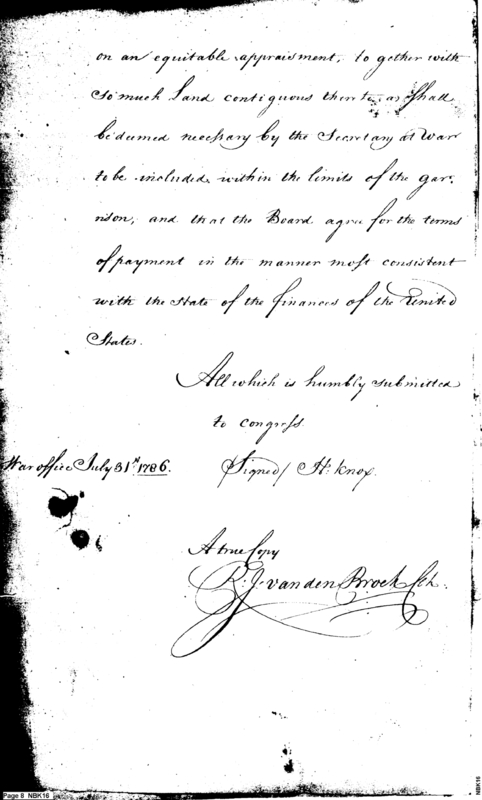 on an equitable appraisment, to gether with
so much Land contiguous thereto, as shall
be deemed necessary by the Secretary at War
to be included within the limits of the gar-
rison, and that the Board agree for the terms
of payment in the manner most consistent
with the State of the finances of the United
States.
All which is humbly submitted
to congress.
War office July 31st 1786.
Signed/ H: Knox.
A true Copy
P. J. van den Broek Clk.
Page 8 NBK16
NBK16